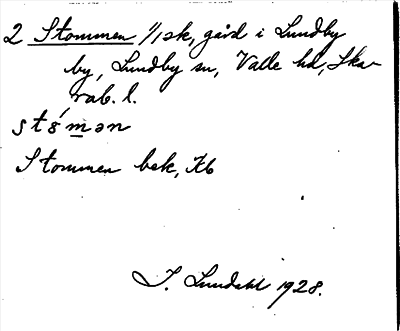 2 Stommen 1/1 sk, gård i Lundby
by, Lundby sn, Valle hd, Ska-
rab. l.
stómən
Stommen bek, Kb
I. Lundahl 1928.